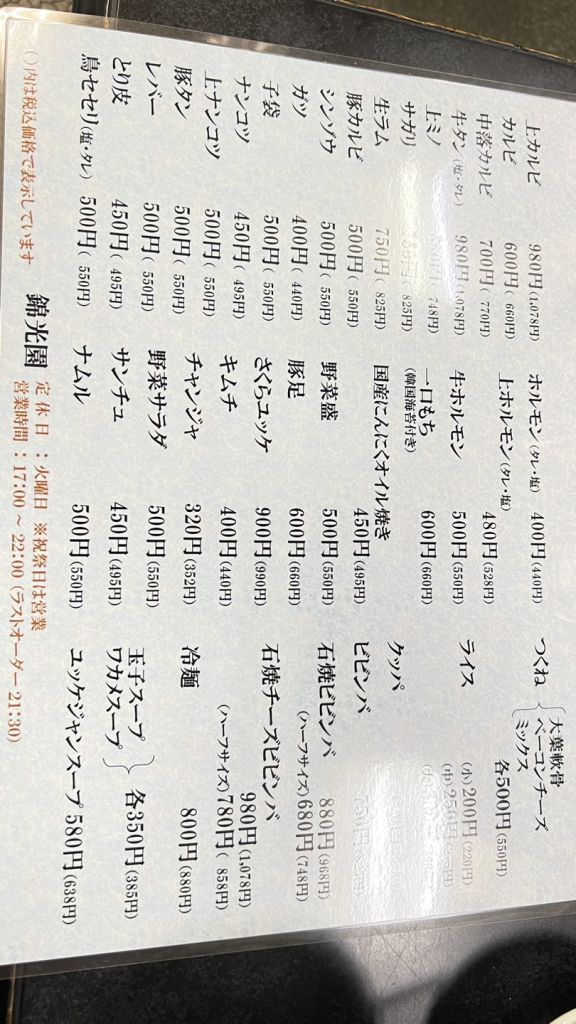 上カルビ 980円(1,078円)
カルビ 600円( 660円)
中落カルビ 700円( 770円)
牛タン(塩・タレ) 980円(1,078円)
上ミノ 748円)
サガリ 825円)
生ラム 750円( 825円)
豚カルビ 500円( 550円)
シンゾウ 500円( 550円)
ガツ 400円( 440円)
子袋 500円( 550円)
ナンコツ 450円( 495円)
上ナンコツ 500円( 550円)
豚タン 500円( 550円)
レバー 500円( 550円)
とり皮 450円( 495円)
鳥セセリ(塩・タレ) 500円( 550円)
ホルモン(タレ・塩) 400円(440円)
上ホルモン(タレ・塩)
480円(528円)
牛ホルモン 500円(550円)
一口もち 600円(660円)
(韓国海苔付き)
国産にんにくオイル焼き
450円(495円)
野菜盛 500円(550円)
豚足 600円(660円)
さくらユッケ 900円(990円)
キムチ 400円(440円)
チャンジャ 320円(352円)
野菜サラダ 500円(550円)
サンチュ 450円(495円)
ナムル 500円(550円)
つくね
大葉軟骨
ベーコンチーズ
ミックス
各500円(550円)
ライス (小)200円(220円)
(中)250円
(大)
クッパ
ビビンバ 750円
石焼ビビンバ 880円(968円)
(ハーフサイズ)680円(748円)
石焼チーズビビンバ
980円(1,078円)
(ハーフサイズ)780円( 858円)
冷麺 800円(880円)
玉子スープ
ワカメスープ
各350円(385円)
ユッケジャンスープ 580円(638円)
( )内は税込価格で表示しています
錦光園
定休日 : 火曜日 ※祝祭日は営業
営業時間 : 17:00 ~ 22:00 (ラストオーダー 21:30)